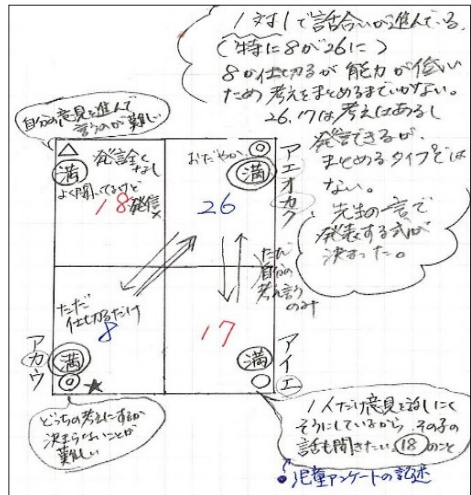 1対1で話合いが進んでいる。
(特に8が26に)
8が仕切るが能力が低い
ため考えをまとめるまでいかない。
26、17は考えはあるし
発言できるが、
まとめるタイプでは
ない。
先生の一言で
発表する式が
決まった。
自分の意見を進んで
言うのが難しい
△
満
発言全く
なし
よく聞いてるけど
発信×
18
おだやか
◎
満
26
アエオカク
ただ
仕切るだけ
8
アカウ
満
◎ ★
ただ
自分の
考え言う
のみ
17
アイエ
満
○
どっちの考えにするか
決まらないことが
難しい
1人だけ意見を話しにく
そうにしているから、その子の
話も聞きたい。18のこと
児童アンケートの記述